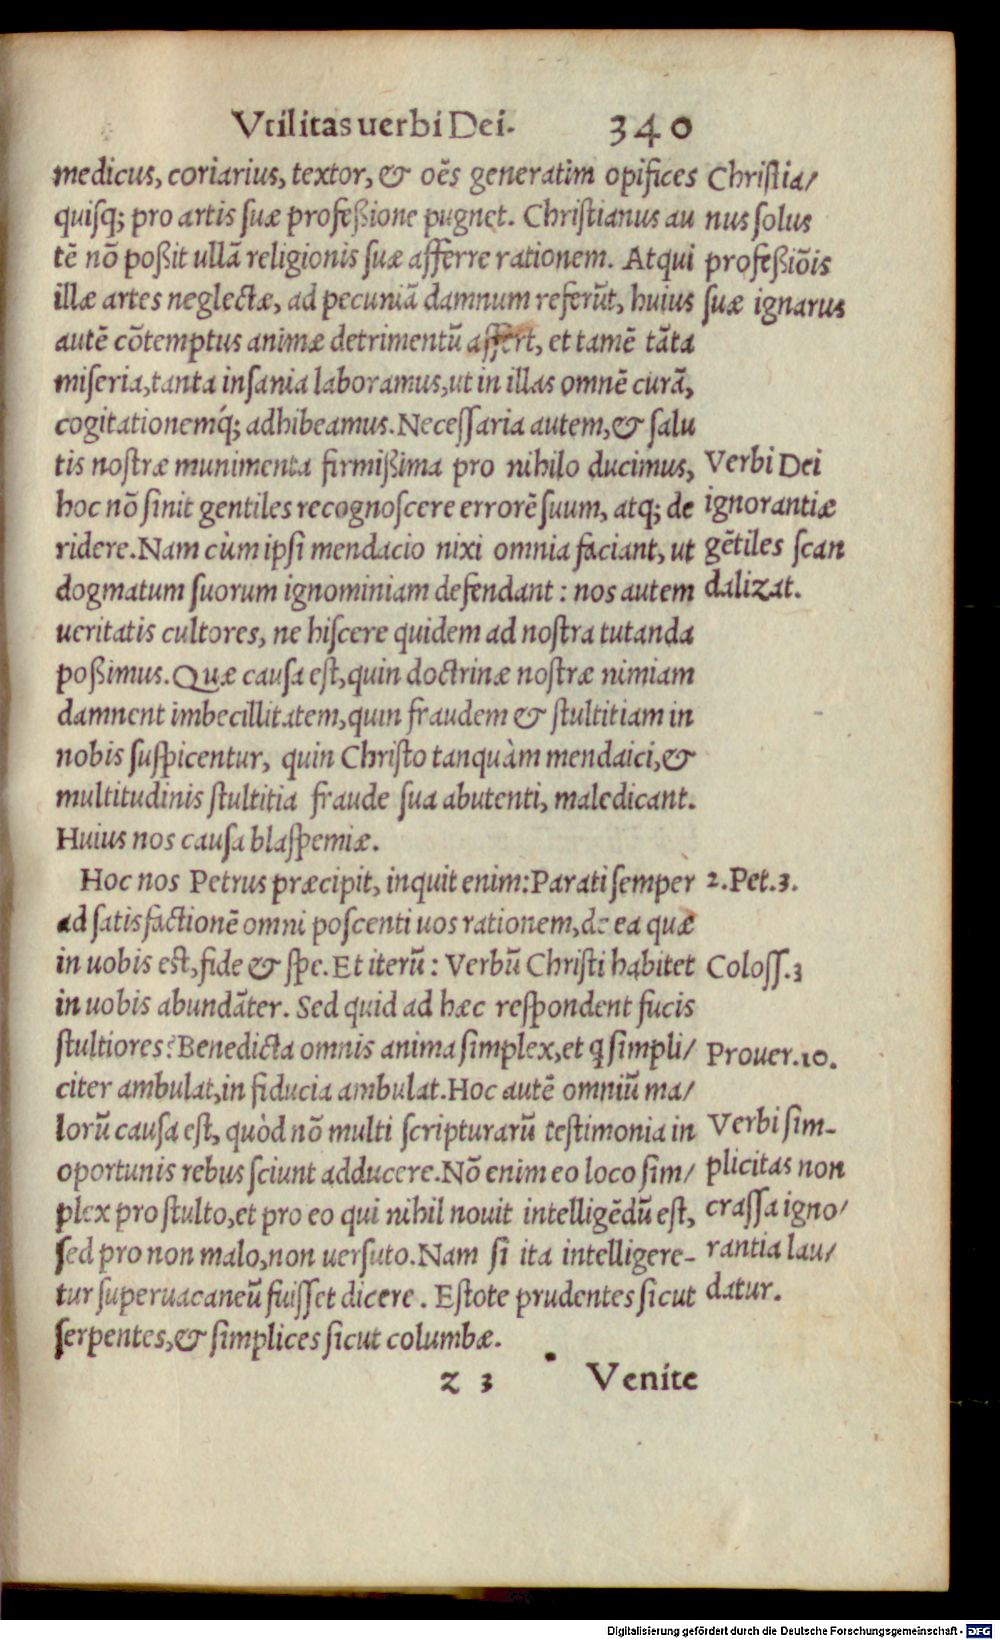 Vtilitas uerbi Dei. 340
medicus, coriarius, textor, & oẽs generatim opifices
quisq; pro artis suæ profeßione pugnet. Christianus au
tẽ nõ poßit ullã religionis suæ afferre rationem. Atqui
illæ artes neglectæ, ad pecuniã damnum referũt, huius
autẽ cõtemptus animæ detrimentũ affert, et tamẽ tãta
miseria, tanta insania laboramus, ut in illas omnẽ curã,
cogitationemq́; adhibeamus. Necessaria autem, & salu
tis nostræ munimenta firmißima pro nihilo ducimus,
hoc nõ sinit gentiles recognoscere errorẽ suum, atq; de
ridere. Nam cùm ipsi mendacio nixi omnia faciant, ut
dogmatum suorum ignominiam defendant : nos autem
ueritatis cultores, ne hiscere quidem ad nostra tutanda
poßimus. Quæ causa est, quin doctrinæ nostræ nimiam
damnent imbecillitatem, quin fraudem & stultitiam in
nobis suspicentur, quin Christo tanquàm mendaici, &
multitudinis stultitia fraude sua abutenti, maledicant.
Huius nos causa blaspemiæ.
Hoc nos Petrus præcipit, inquit enim: Parati semper
ad satisfactionẽ omni poscenti uos rationem, de ea quæ
in uobis est, fide & spe. Et iterũ : Verbũ Christi habitet
in uobis abundãter. Sed quid ad hæc respondent fucis
stultiores? Benedicta omnis anima simplex, et q simpli/
citer ambulat, in fiducia ambulat. Hoc autẽ omniũ ma/
lorũ causa est, quòd nõ multi scripturarũ testimonia in
oportunis rebus sciunt adducere. Nõ enim eo loco sim/
plex pro stulto, et pro eo qui nihil nouit intelligẽdũ est,
sed pro non malo, non uersuto. Nam si ita intelligere-
tur superuacaneũ fuisset dicere . Estote prudentes sicut
serpentes, & simplices sicut columbæ.
z 3 Venite
Christia/
nus solus
profeßiõis
suæ ignarus
Verbi Dei
ignorantiæ
gẽtiles scan
dalizat.
2. Pet. 3.
Coloss. 3
Prouer. 10.
Verbi sim-
plicitas non
crassa igno/
rantia lau/
datur.
Digitalisierung gefördert durch die Deutsche Forschungsgemeinschaft - DFG